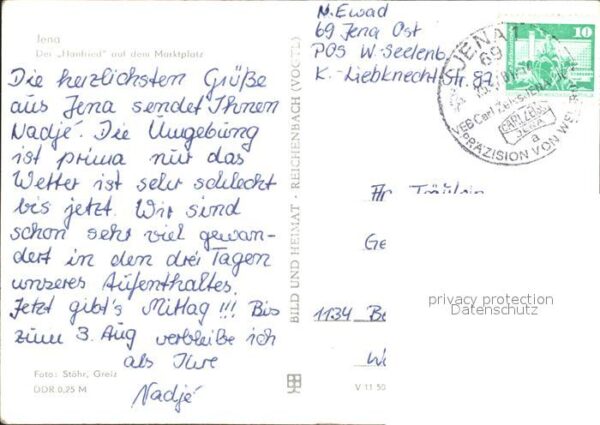 Jena
Der „Hanfried" auf dem Marktplatz
Die herzlichsten Grüße
aus Jena sendet Ihnen
Nadjé. Die Umgebung
ist prima nur das
Wetter ist sehr schlecht
bis jetzt. Wir sind
schon sehr viel gewan-
dert in den drei Tagen
unseres Aufenthaltes.
Jetzt gibt's Mittag!!! Bis
zum 3. Aug verbleibe ich
als Ihre
Nadjé
Foto: Stöhr, Greiz
DDR 0,25 M
BILD UND HEIMAT · REICHENBACH (VOGTL)
V 11 50
N. Ewad
69 Jena Ost
POS W.-Seelenb.
K.-Liebknecht Str. 87
JENA 1
69
VEB Carl Zeiss JENA
CARL ZEISS
JENA
a
PRÄZISION VON WEL
10
An Fräulein
Ge
1134 Be
privacy protection
Datenschutz